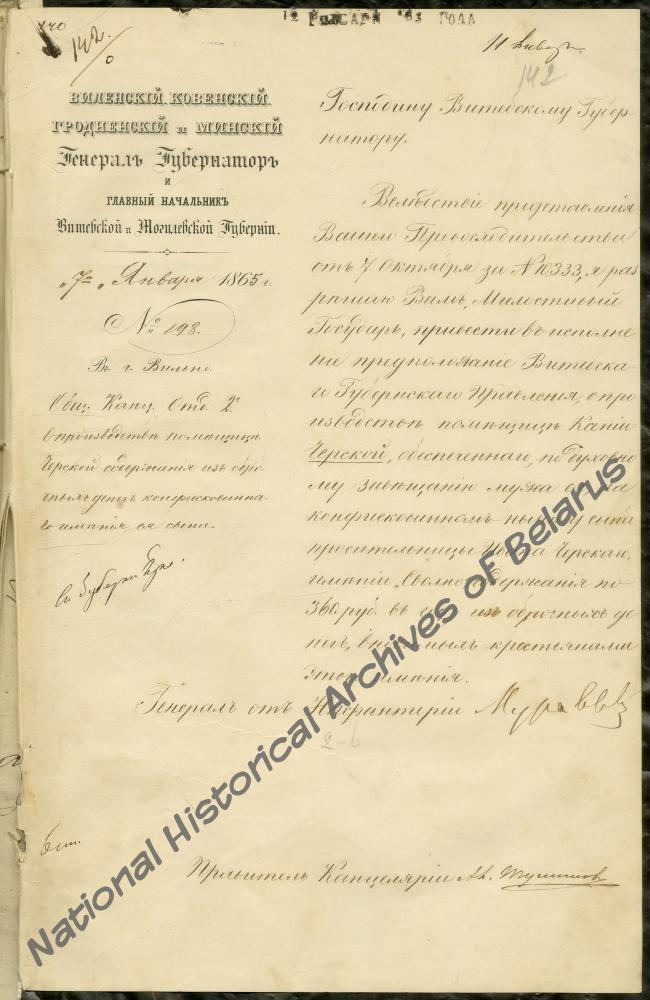 140
142.
12 ЯНВАРЯ 65 ГОДА
11 Январ.
142
ВИЛЕНСКІЙ, КОВЕНСКІЙ,
ГРОДНЕНСКІЙ и МИНСКІЙ
Генералъ Губернаторъ
И
ГЛАВНЫЙ НАЧАЛЬНИКЪ
Витебской и Могилевской Губерніи.
„7го„ Января 1865 г.
№ 198.
Въ г. Вильно
Общ. Канц. Отд. 2е
О производствѣ помѣщицѣ
Черской содержанія изъ обро-
чныхъ денегъ конфискованна-
го имѣнія ея сына.
Господину Витебскому Губер-
натору.
Вслѣдствіе представленія
Вашего Превосходительства
отъ 7 Октября за № 10.333, я раз
рѣшаю Вамъ, Милостивый
Государь, привести въ исполне
ніе предположеніе Витебска-
го Губернскаго Правленія, о про
изводствѣ помѣщицѣ Ксаніи
Черской, обезпеченнаго, по духовно
му завѣщанію мужа ея на
конфискованномъ нынѣ у сына
просительницы Ивана Черскаго,
имѣніи „Свольно содержанія по
360 руб. въ годъ изъ оброчныхъ де
негъ, вносимыхъ крестьянами
этого имѣнія.
Генералъ отъ Инфантеріи Муравьевъ
2-6
Правитель Канцеляріи
National Historical Archives of Belarus